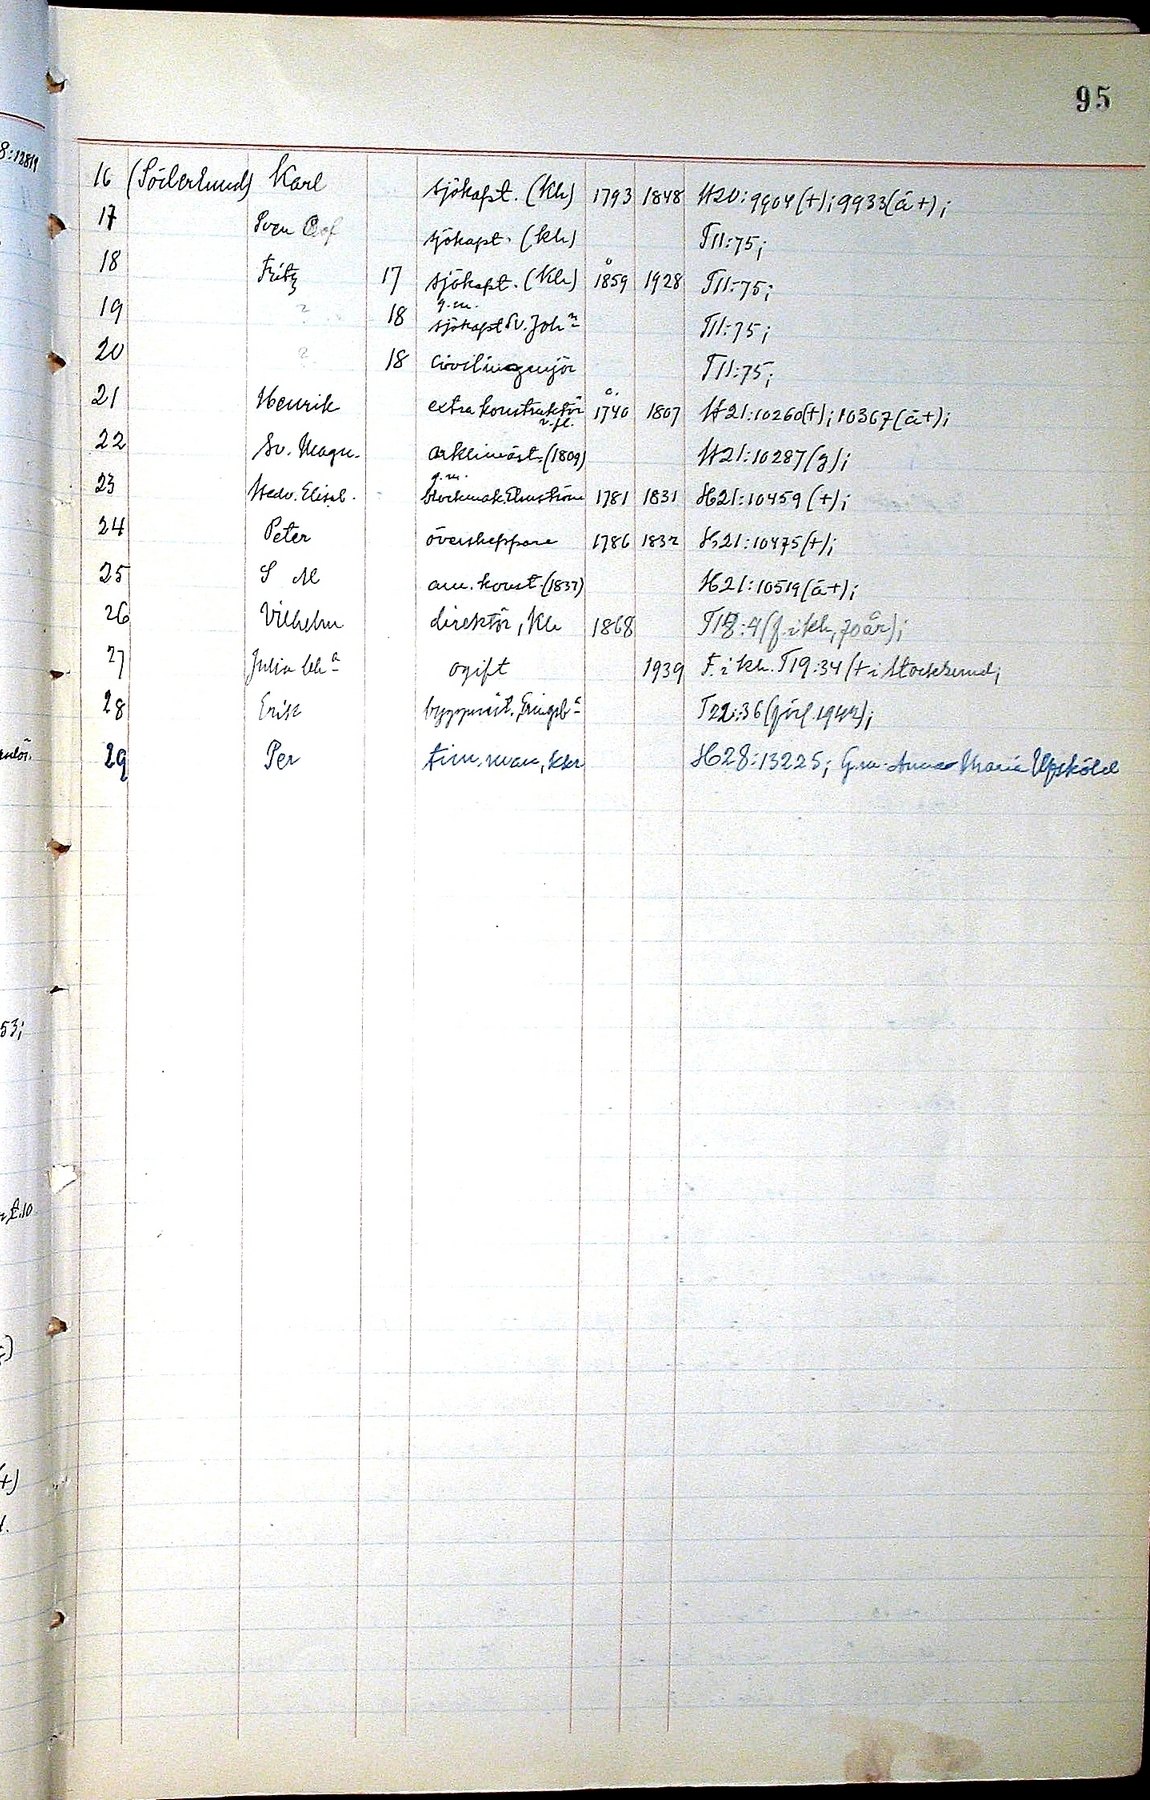 95
16 (Söderlund) Karl sjökapt. (Kh) 1793 1848 H20:9904(+); 9933(ä+);
17 Sven Olof sjökapt. (Kh) T11:75;
18 Fritz 17 sjökapt. (Kh) 1859 1928 T11:75;
19 ? 18 g.m. sjökapt Sv. Joh:n T11:75;
20 ? 18 civilingenjör T11:75;
21 Henrik extra konstruktör v. fl. 1740 1807 H21:10260(+); 10367(ä+);
22 Sv. Magn. arklimäst. (1809) H21:10287(g);
23 Hedv. Elisab. g.m. blockmak. 1781 1831 H21:10459(+);
24 Peter överskeppare 1786 1832 H21:10475(+);
25 S M am. konst. (1837) H21:10519(ä+);
26 Vilhelm direktör, Kh 1868 T18:4(f. i kh, 70 år);
27 Julia ogift 1939 F. i kh. T19:34(+ i Stocksund;
28 Erik T22:36(förl. 1942);
29 Per tim.man, kkr H28:13225; G.m. Anna Maria Uppsköld
8:12819
53;
t.10
(+)